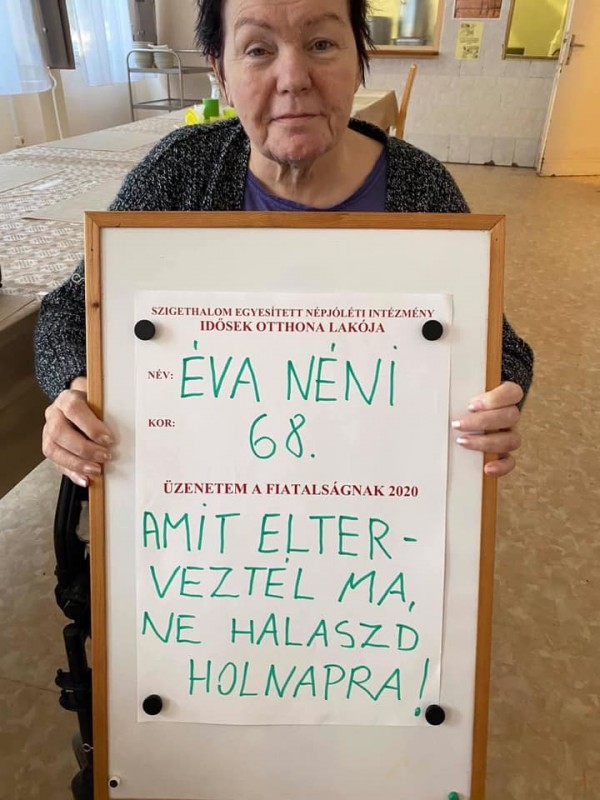 SZIGETHALOM EGYESÍTETT NÉPJÓLÉTI INTÉZMÉNY
IDŐSEK OTTHONA LAKÓJA
NÉV: ÉVA NÉNI
KOR: 68.
ÜZENETEM A FIATALSÁGNAK 2020
AMIT ELTER-
VEZTÉL MA,
NE HALASZD
HOLNAPRA!